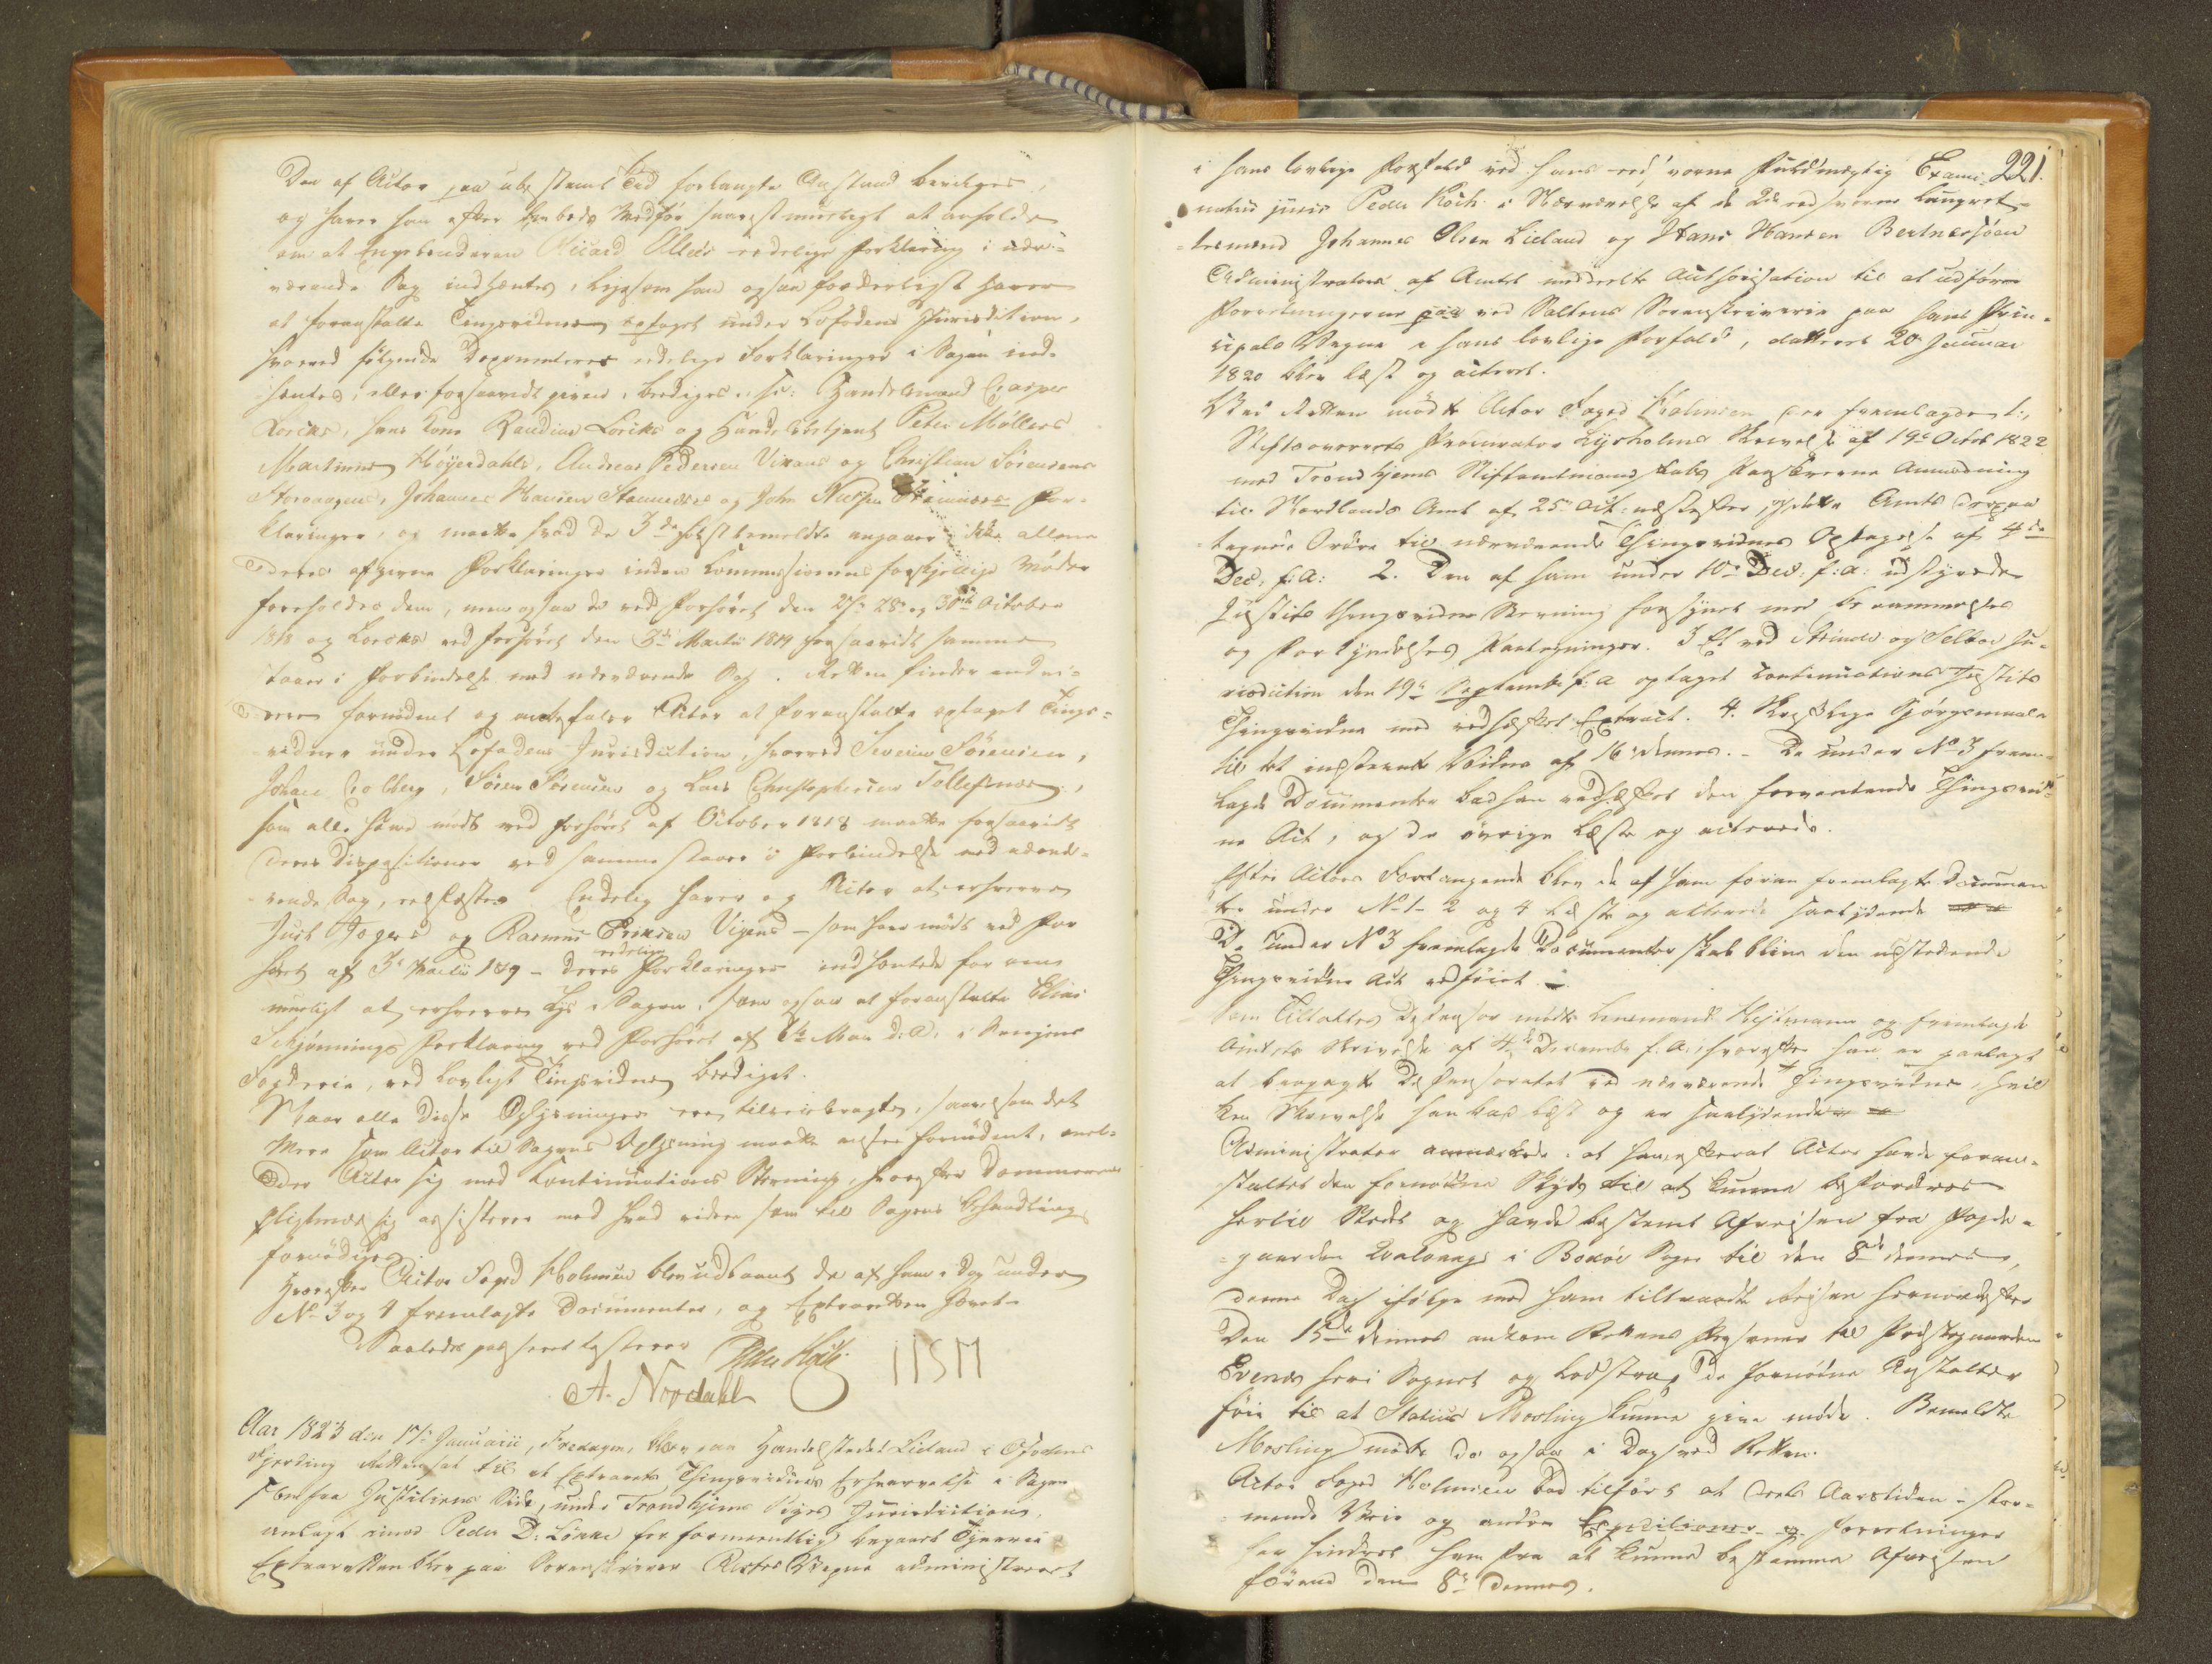 Den af Actor paa ubestemt Tid forlangte Anstand bevilges,
og haver han efter Embeds Medfør snarest mueligt at anholde
om at Engelænderen Ricard Allens edelige Forklaring i nær-
værende Sag indhentes, ligesom han ogsaa forderligst haver
at foranstalte Tingsvidner optaget under Lofodens Jurisdiction,
hvorved følgende Deponenteres edelige Forklaringer i Sagen ind-
hentes, eller forsaavidt givne, beediges, sc: Handelsmand Casper
Lorcks, hans Kone Lorcks og Handelsbetjent Peter Møllers
Martinus Høyerdahls, Andreas Pedersen og Christian Sørensens
Johannes Hansen og John For-
klaringer, og maatte hvad de 3de først bemeldte angaaer ikke allene
deres afgivne Forklaringer inden Commissionens forskjellige Møder
foreholdes dem, men ogsaa de ved Forhøret den 27de 28de og 30te October
1818 og Lorcks ved Forhøret den 3de Martii 1819 forsaavidt samme
staaer i Forbindelse med nærværende Sag. Retten finder end vi-
dere fornødent og anbefaler Actor at foranstalte optaget Tings-
vidner under Lofodens Jurisdiction, hvorved Severin Sørensen,
Johan Colberg, Søren Sørensen og Lars Christophersen Tollefsnæs,
som alle have mødt ved Forhøret af October 1818 maatte forsaavidt
deres Depositioner ved samme staaer i Forbindelse med nærvæ-
rende Sag, edfæstes. Endelig haver og Actor at erhverve
Just og Rasmus Eriksen Vigens - som have mødt ved For-
høret af 3de Martii 1819 - deres edelige Forklaringer indhentede for om
mueligt at erhverve Lys i Sagen, som ogsaa at foranstalte Elias
Forklaring ved Forhøret af Mai d: A: i Senjens
Fogderie, ved lovligt Tingsvidne beediget.
Naar alle disse Oplysninger ere tilveiebragte, saavelsom det
mere som Actor til Sagens Oplysning maatte ansee fornødent, mel-
der Actor sig med Continuations Stevning, hvorefter Dommeren
pligtmæssig assisterer med hvad videre som til Sagens Behandling
fornødiges.
Hvorefter Actor Foged Holmsen blev udlaant de af ham i Dag under
No 3 og 4 fremlagte Documenter, og Extraretten hævet.
Saaledes passeret testerer Peder Koch
A. Nordahl
Aar 1823 den 17de Januarii, Fredagen, blev paa Handelsstedet Lieland i Ofotens
Fjerding Retten sat til et Extrarets Thingsvidnes Erhvervelse i Sagen
som fra Justitiens Side, under Trondhjems Byes Jurisdiction,
anlagt imod Peder D: Lønne for formeentlig begaaet Tyverie
Extraretten blev paa Sorenskriver Vegne administreret
221.
i hans lovlige Forfald ved hans eed­svorne Fuldmægtig Exami-
natus juris Peder Koch i Nærværelse af de 2de eedsvorne Laugret-
temænd Johannes Olsen Lieland og Hans Hansen
Administrators af Amtet meddeelte Authorisation til at udføre
Forretningerne paa ved Saltens Sorenskriverie paa hans Prin-
cipals Vegne i hans lovlige Forfald, datteret 20de Januar
1820 blev læst og acteret.
Ved Retten mødte Actor Foged Holmsen, der fremlagde 1:,
Stiftsoverrets Procurator Lysholms Skrivelse af 19de Octbr 1822
med Trondhjems Stiftamtmandskabs paaskrevne Anmodning
til Nordlands Amt af 25de Oct: næstefter, og dette Amts derpaa
tegnede Ordre til nærværende Thingsvidnes Optagelse af 4de
Dec: f: A: 2. Den af ham under 10de Dec: f: A: udstyrede
Justits Thingsvidne Stevning forsynet med Berammelses
og Forkyndelses Paategninger. 3 Et ved Strinde og Selboe Ju-
risdiction den 19de September f: A optaget Continuations Justits
Thingsvidne med vedhæftet Extract. 4. Skriftlige Spørgsmaale
til det instevnte Vidne af 16de dennes. - De under No 3 frem-
lagte Documenter bad han vedhæftet den forventende Thingsvid-
ne Act, og de øvrige læste og acterede.
Efter Actors Forlangende blev de af ham foran fremlagte Documen-
ter under No 1- 2 og 4 læste og acterede saalydende
De under No 3 fremlagte Documenter skal blive den udstedende
Thingsvidne Act vedføiet.
Som Tiltaltes Defensor mødte Lensmand Klæboemann og fremlagde
Amtets Skrivelse af 4de December f: A:, hvorefter han er paalagt
at besørge Defensoratet ved nærværende Thingsvidne, hvil-
ken Skrivelse han bad læst og er saalydende
Administrator anmærkede: at Actor havde foran-
staltet den fornødne Skyds til at kunne befordres
hertil Stedet og havde bestemt Afreisen fra Fogde-
gaarden Qvalvaag i Bodøe Sogn til den 8de dennes,
denne Dag ifølge med ham tiltraadte Reisen hernordefter.
Den 15de dennes ankom Rettens Personer til Præstegaarden
Evenes heri Sognet og lod strax de fornødne Anstalter
føie til at Statius Mosling kunne give møde. Bemeldte
Mosling mødte da ogsaa i Dag ved Retten.
Actor Foged Holmsen bad tilført at deels Aarstiden i stor-
mende Veir og andre Expeditioner og Forretninger
har hindret ham fra at kunne bestemme Afreisen
førend den 8de dennes.